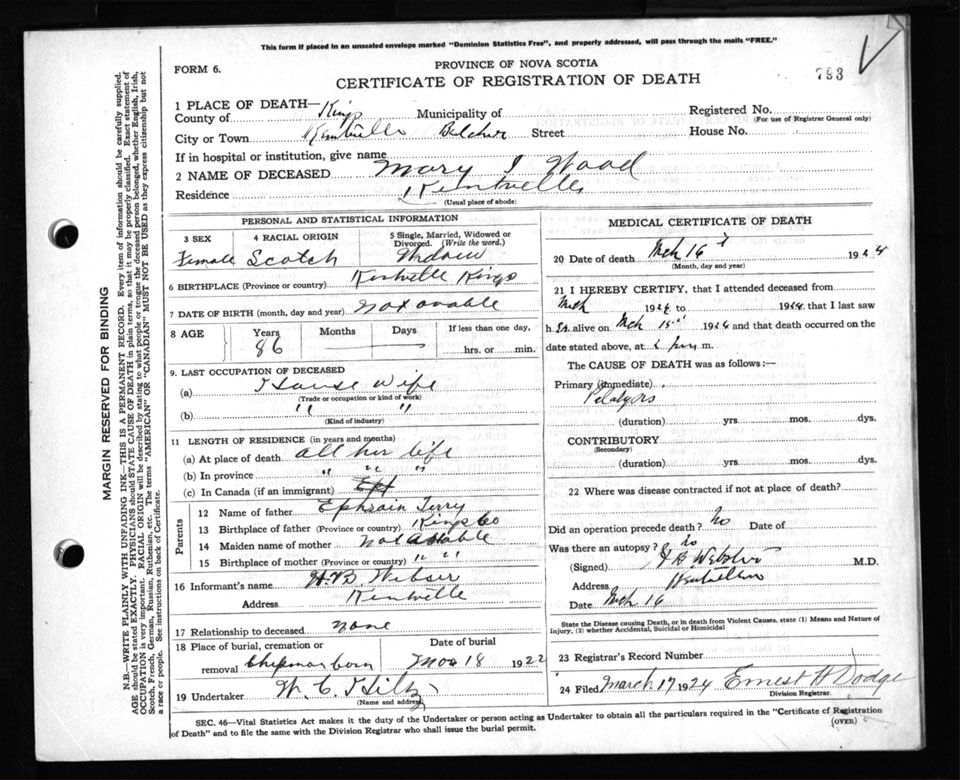 This form if placed in an unsealed envelope marked "Dominion Statistics Free", and properly addressed, will pass through the mails "FREE."
FORM 6.
PROVINCE OF NOVA SCOTIA
CERTIFICATE OF REGISTRATION OF DEATH
793
1 PLACE OF DEATH—
County of Kings Municipality of Registered No.
(For use of Registrar General only)
City or Town Kentville Belcher Street House No.
If in hospital or institution, give name
2 NAME OF DECEASED Mary I Wood
Residence Kentville
(Usual place of abode)
PERSONAL AND STATISTICAL INFORMATION
3 SEX
Female
4 RACIAL ORIGIN
Scotch
5 Single, Married, Widowed or Divorced. (Write the word.)
Widow
6 BIRTHPLACE (Province or country) Kentville Kings
7 DATE OF BIRTH (month, day and year)
8 AGE Years Months Days If less than one day,
86
hrs. or min.
9. LAST OCCUPATION OF DECEASED
(a) House Wife
(Trade or occupation or kind of work)
(b) " " "
(Kind of industry)
11 LENGTH OF RESIDENCE (in years and months)
(a) At place of death all her life
(b) In province " " "
(c) In Canada (if an immigrant)
Parents
12 Name of father Ephraim Terry
13 Birthplace of father (Province or country) Kings Co
14 Maiden name of mother
15 Birthplace of mother (Province or country) " "
16 Informant's name H. B. Webster
Address Kentville
17 Relationship to deceased none
18 Place of burial, cremation or removal
Date of burial
Mar 18 1922
19 Undertaker W. C. Hiltz
(Name and address)
MEDICAL CERTIFICATE OF DEATH
20 Date of death Mch 16 1924
(Month, day and year)
21 I HEREBY CERTIFY, that I attended deceased from
Mch 1924 to 1924 that I last saw
h er alive on Mch 15 1924 and that death occurred on
date stated above, at m.
The CAUSE OF DEATH was as follows:—
Primary (immediate)
(duration) yrs. mos. dys.
CONTRIBUTORY
(Secondary)
(duration) yrs. mos. dys.
22 Where was disease contracted if not at place of death?
Did an operation precede death? No Date of
Was there an autopsy? no
(Signed) H B Webster M.D.
Address Kentville
Date Mch 16
State the Disease causing Death, or in death from Violent Causes, state (1) Means and Nature of Injury, (2) whether Accidental, Suicidal or Homicidal
23 Registrar's Record Number
24 Filed March 17 1924 Ernest H Dodge
Division Registrar.
SEC. 46—Vital Statistics Act makes it the duty of the Undertaker or person acting as Undertaker to obtain all the particulars required in the "Certificate of Registration
of Death" and to file the same with the Division Registrar who shall issue the burial permit.
(OVER)
MARGIN RESERVED FOR BINDING
N.B.—WRITE PLAINLY WITH UNFADING INK—THIS IS A PERMANENT RECORD. Every item of information should be carefully supplied.
AGE should be stated EXACTLY. PHYSICIANS should STATE CAUSE OF DEATH in plain terms, so that it may be properly classified. Exact statement of
OCCUPATION is very important. RACIAL ORIGIN will be described by stating to what people or tongue the deceased person belonged, whether English, Irish,
Scotch, French, German, Russian, Ruthenian, etc. The terms "AMERICAN" OR "CANADIAN" MUST NOT BE USED as they express citizenship but not
a race or people. See instructions on back of Certificate.